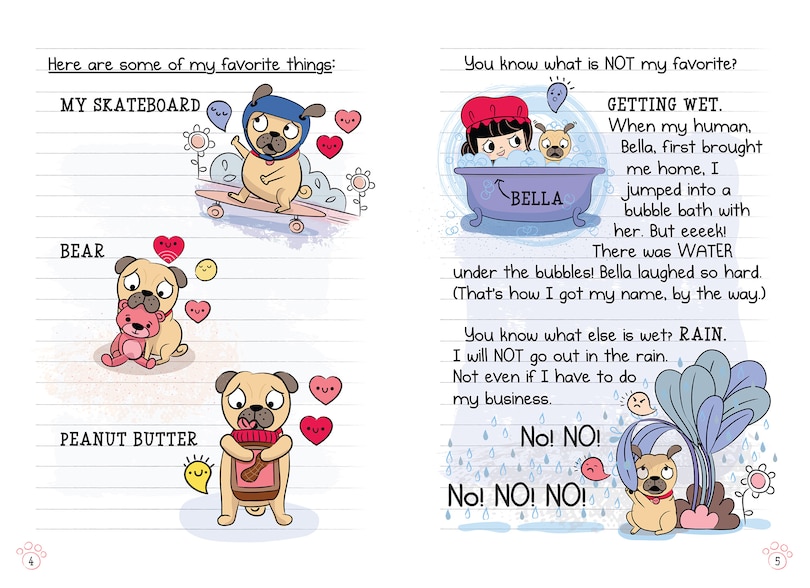 Here are some of my favorite things:
MY SKATEBOARD
BEAR
PEANUT BUTTER
4
You know what is NOT my favorite?
GETTING WET.
When my human,
Bella, first brought
me home, I
jumped into a
bubble bath with
her. But eeeek!
There was WATER
under the bubbles! Bella laughed so hard.
(That's how I got my name, by the way.)
BELLA
You know what else is wet? RAIN.
I will NOT go out in the rain.
Not even if I have to do
my business.
No! NO!
No! NO! NO!
5